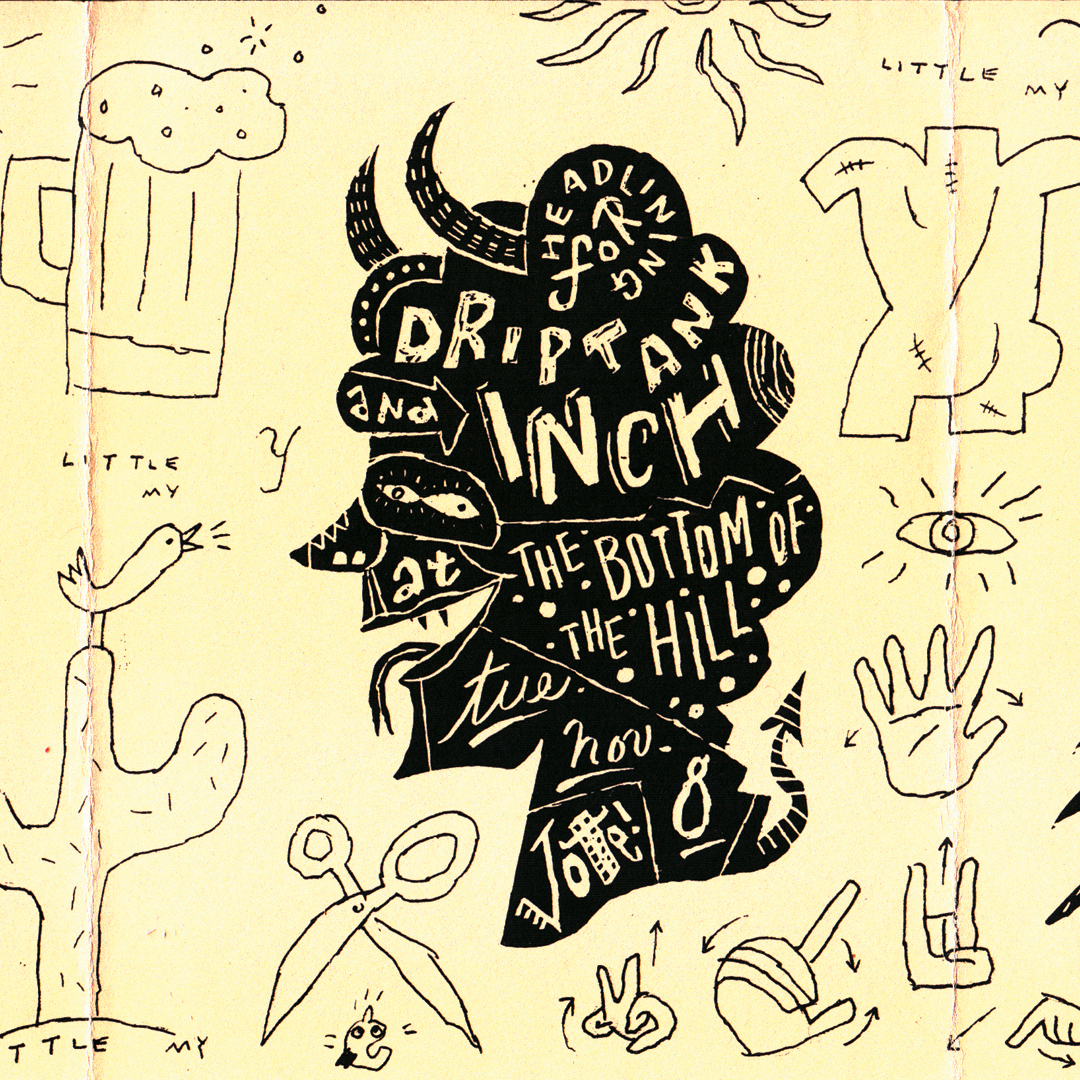 LITTLE
MY
HEADLINING
for
DRIPTANK
and
INCH
at
THE BOTTOM OF
THE HILL
tue.
nov.
8
Vote!
LITTLE
MY
Y
TTLE MY